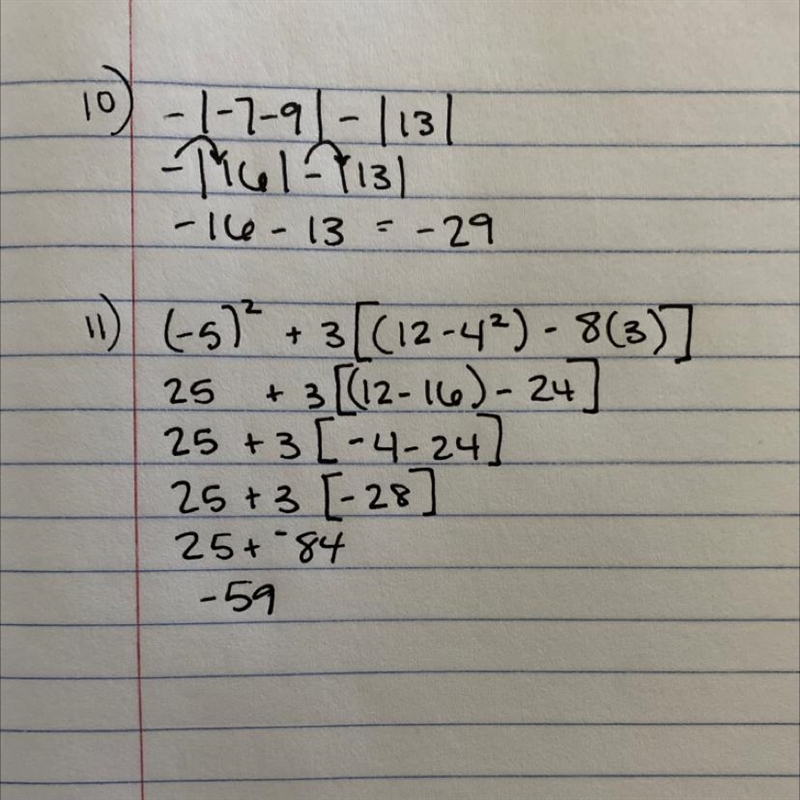 10) -|-7-9| - |13|
-|16| - |13|
-16 - 13 = -29
11) (-5)² + 3[(12-4²) - 8(3)]
25 + 3[(12-16) - 24]
25 + 3 [-4-24]
25 + 3 [-28]
25 + ⁻84
-59